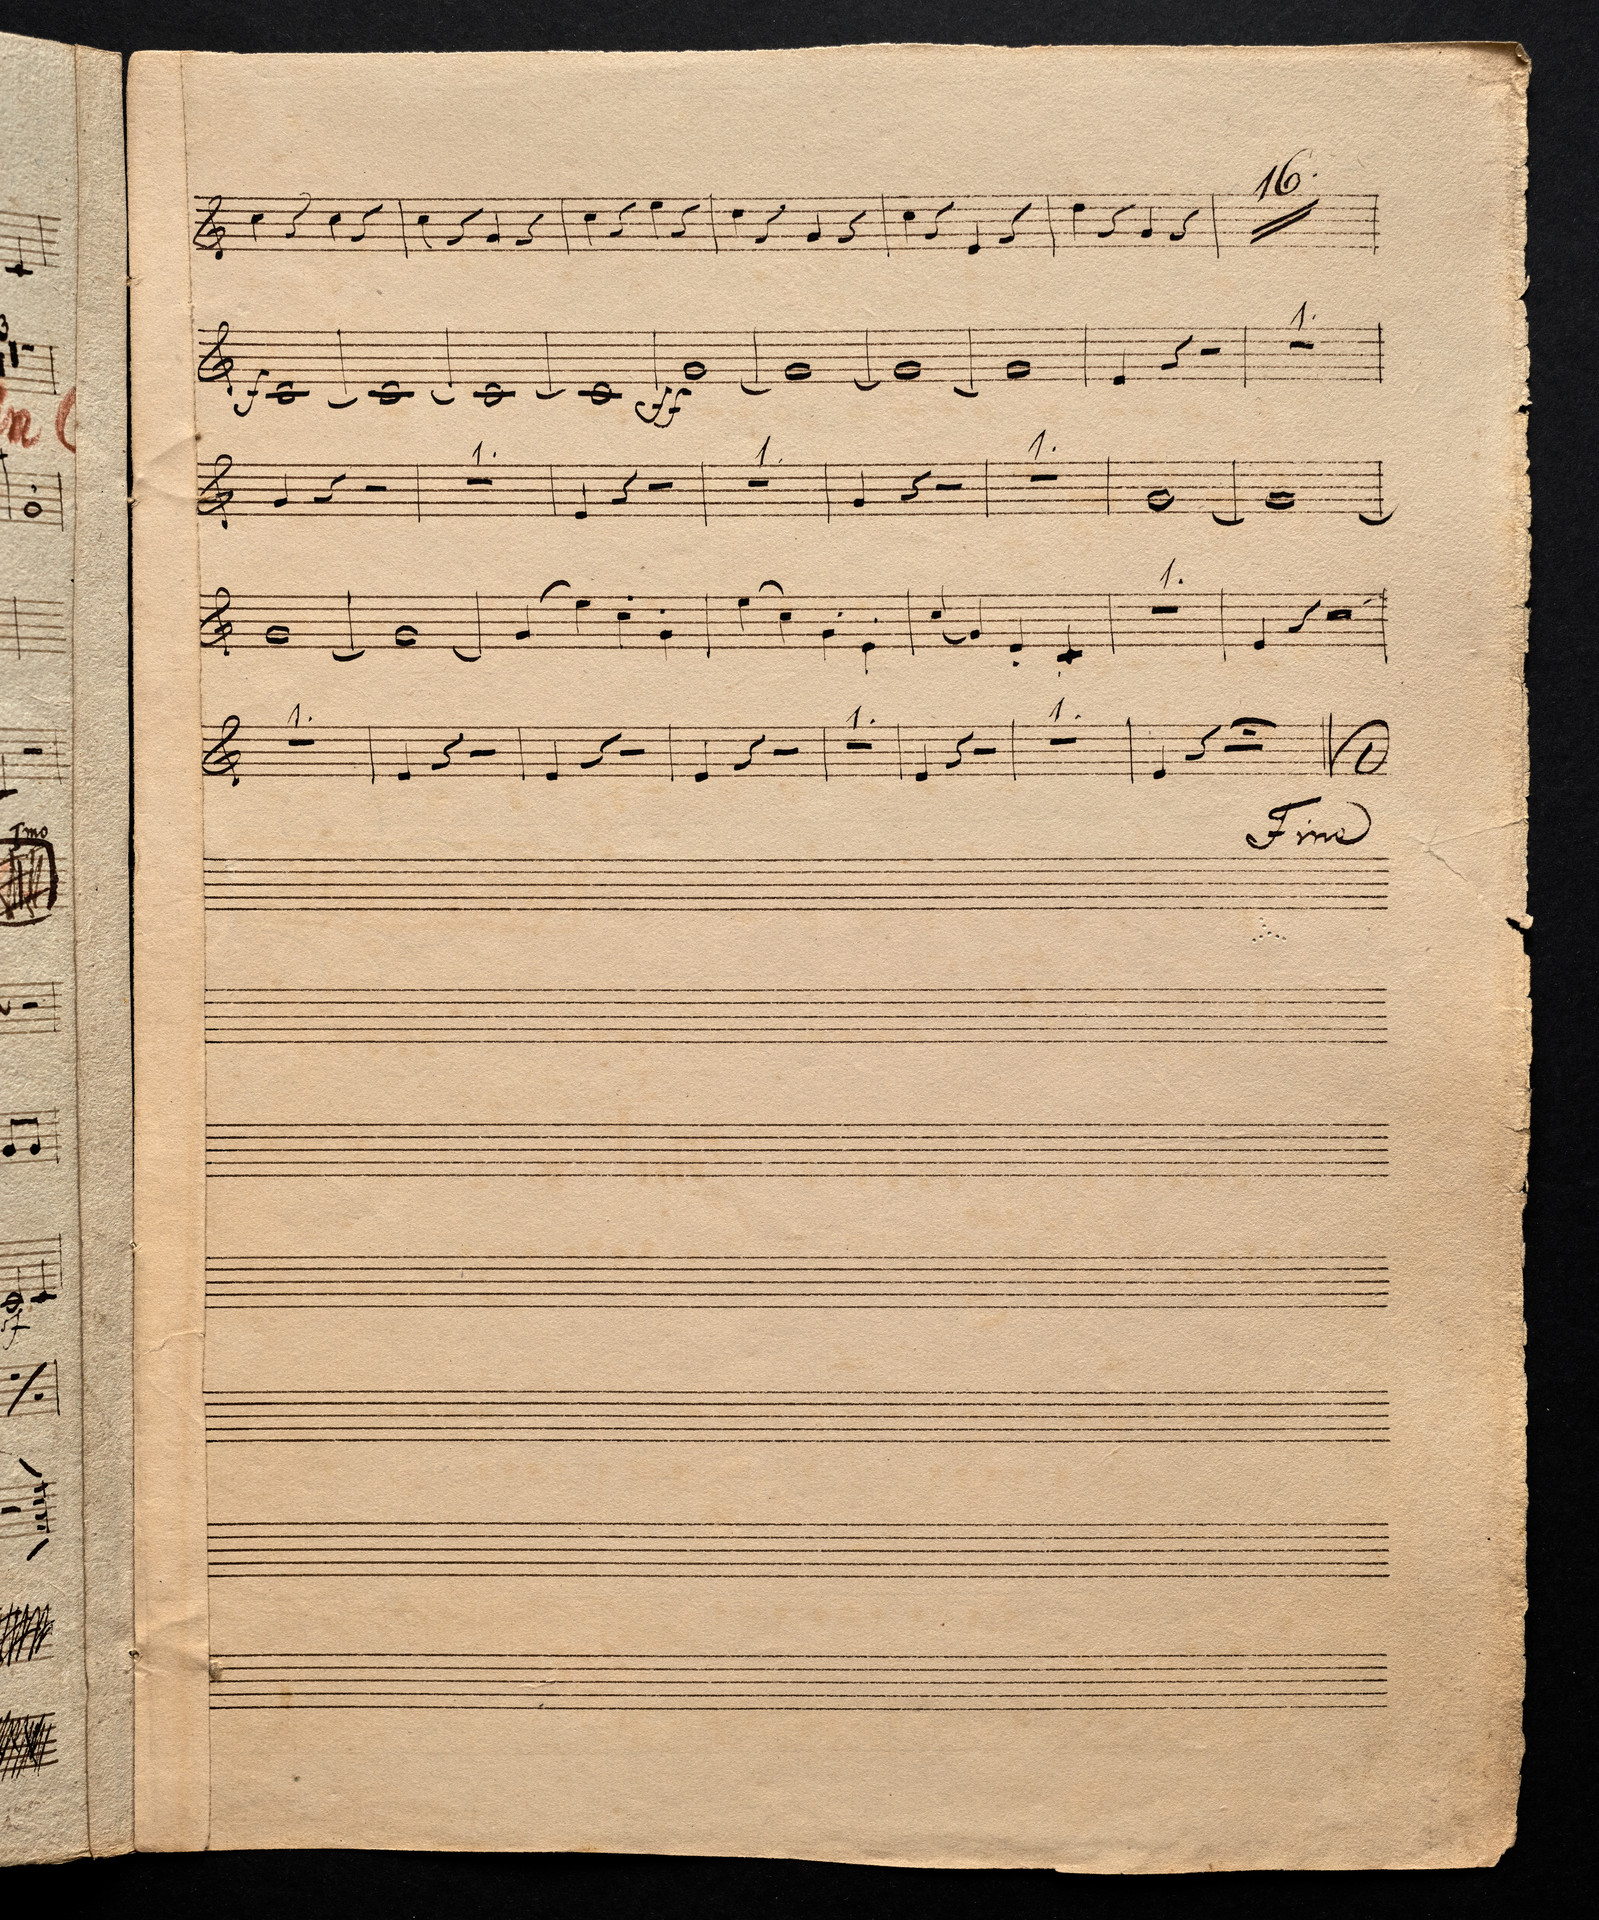 16.
1.
f ff
1. 1. 1.
1.
1. 1. 1.
Fine